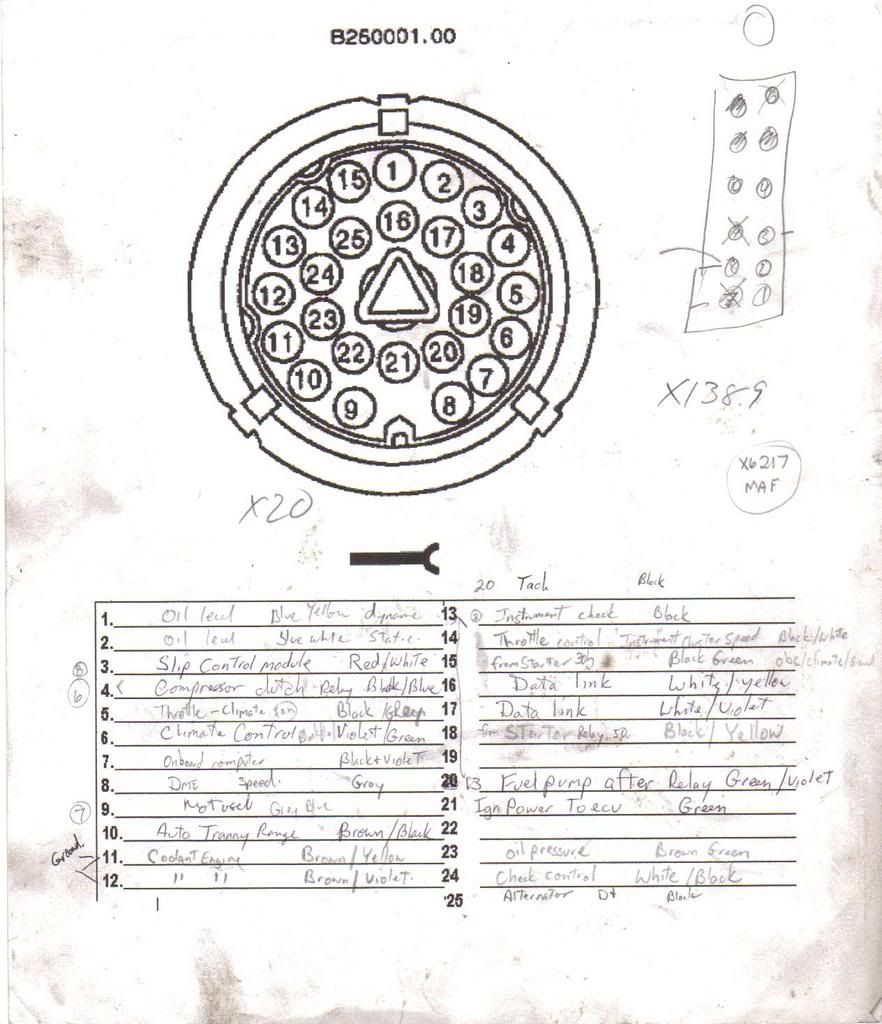 B260001.00
15 1 2
14 3
16
13 25 17 4
24 18
12 5
23 19
11 6
22 21 20
10 7
9 8
X20
X1389
X6217
MAF
20 Tach Black
1. Oil level Blue Yellow dynamic
2. oil level Blue white Static
⑧ 3. Slip Control module Red/White
⑥ 4. Compressor clutch Relay Black/Blue
5. Throttle - Climate Black/Grey
6. Climate Control Violet/Green
7. Onboard computer Black+Violet
8. DME Speed Gray
⑦ 9. Not used Grey Blue
10. Auto Tranny Range Brown/Black
Ground 11. Coolant Engine Brown/Yellow
12. " " Brown/Violet
13 Instrument check Black
14 Throttle control Instrument Cluster Speed Black/White
15 from Starter 30h Black Green obc/climate/
16 Data link White/yellow
17 Data link White/Violet
18 from Starter Relay 50 Black/Yellow
19
20 13 Fuel pump after Relay Green/Violet
21 Ign Power To ecu Green
22
23 oil pressure Brown Green
24 Check control White/Black
25 Alternator D+ Black